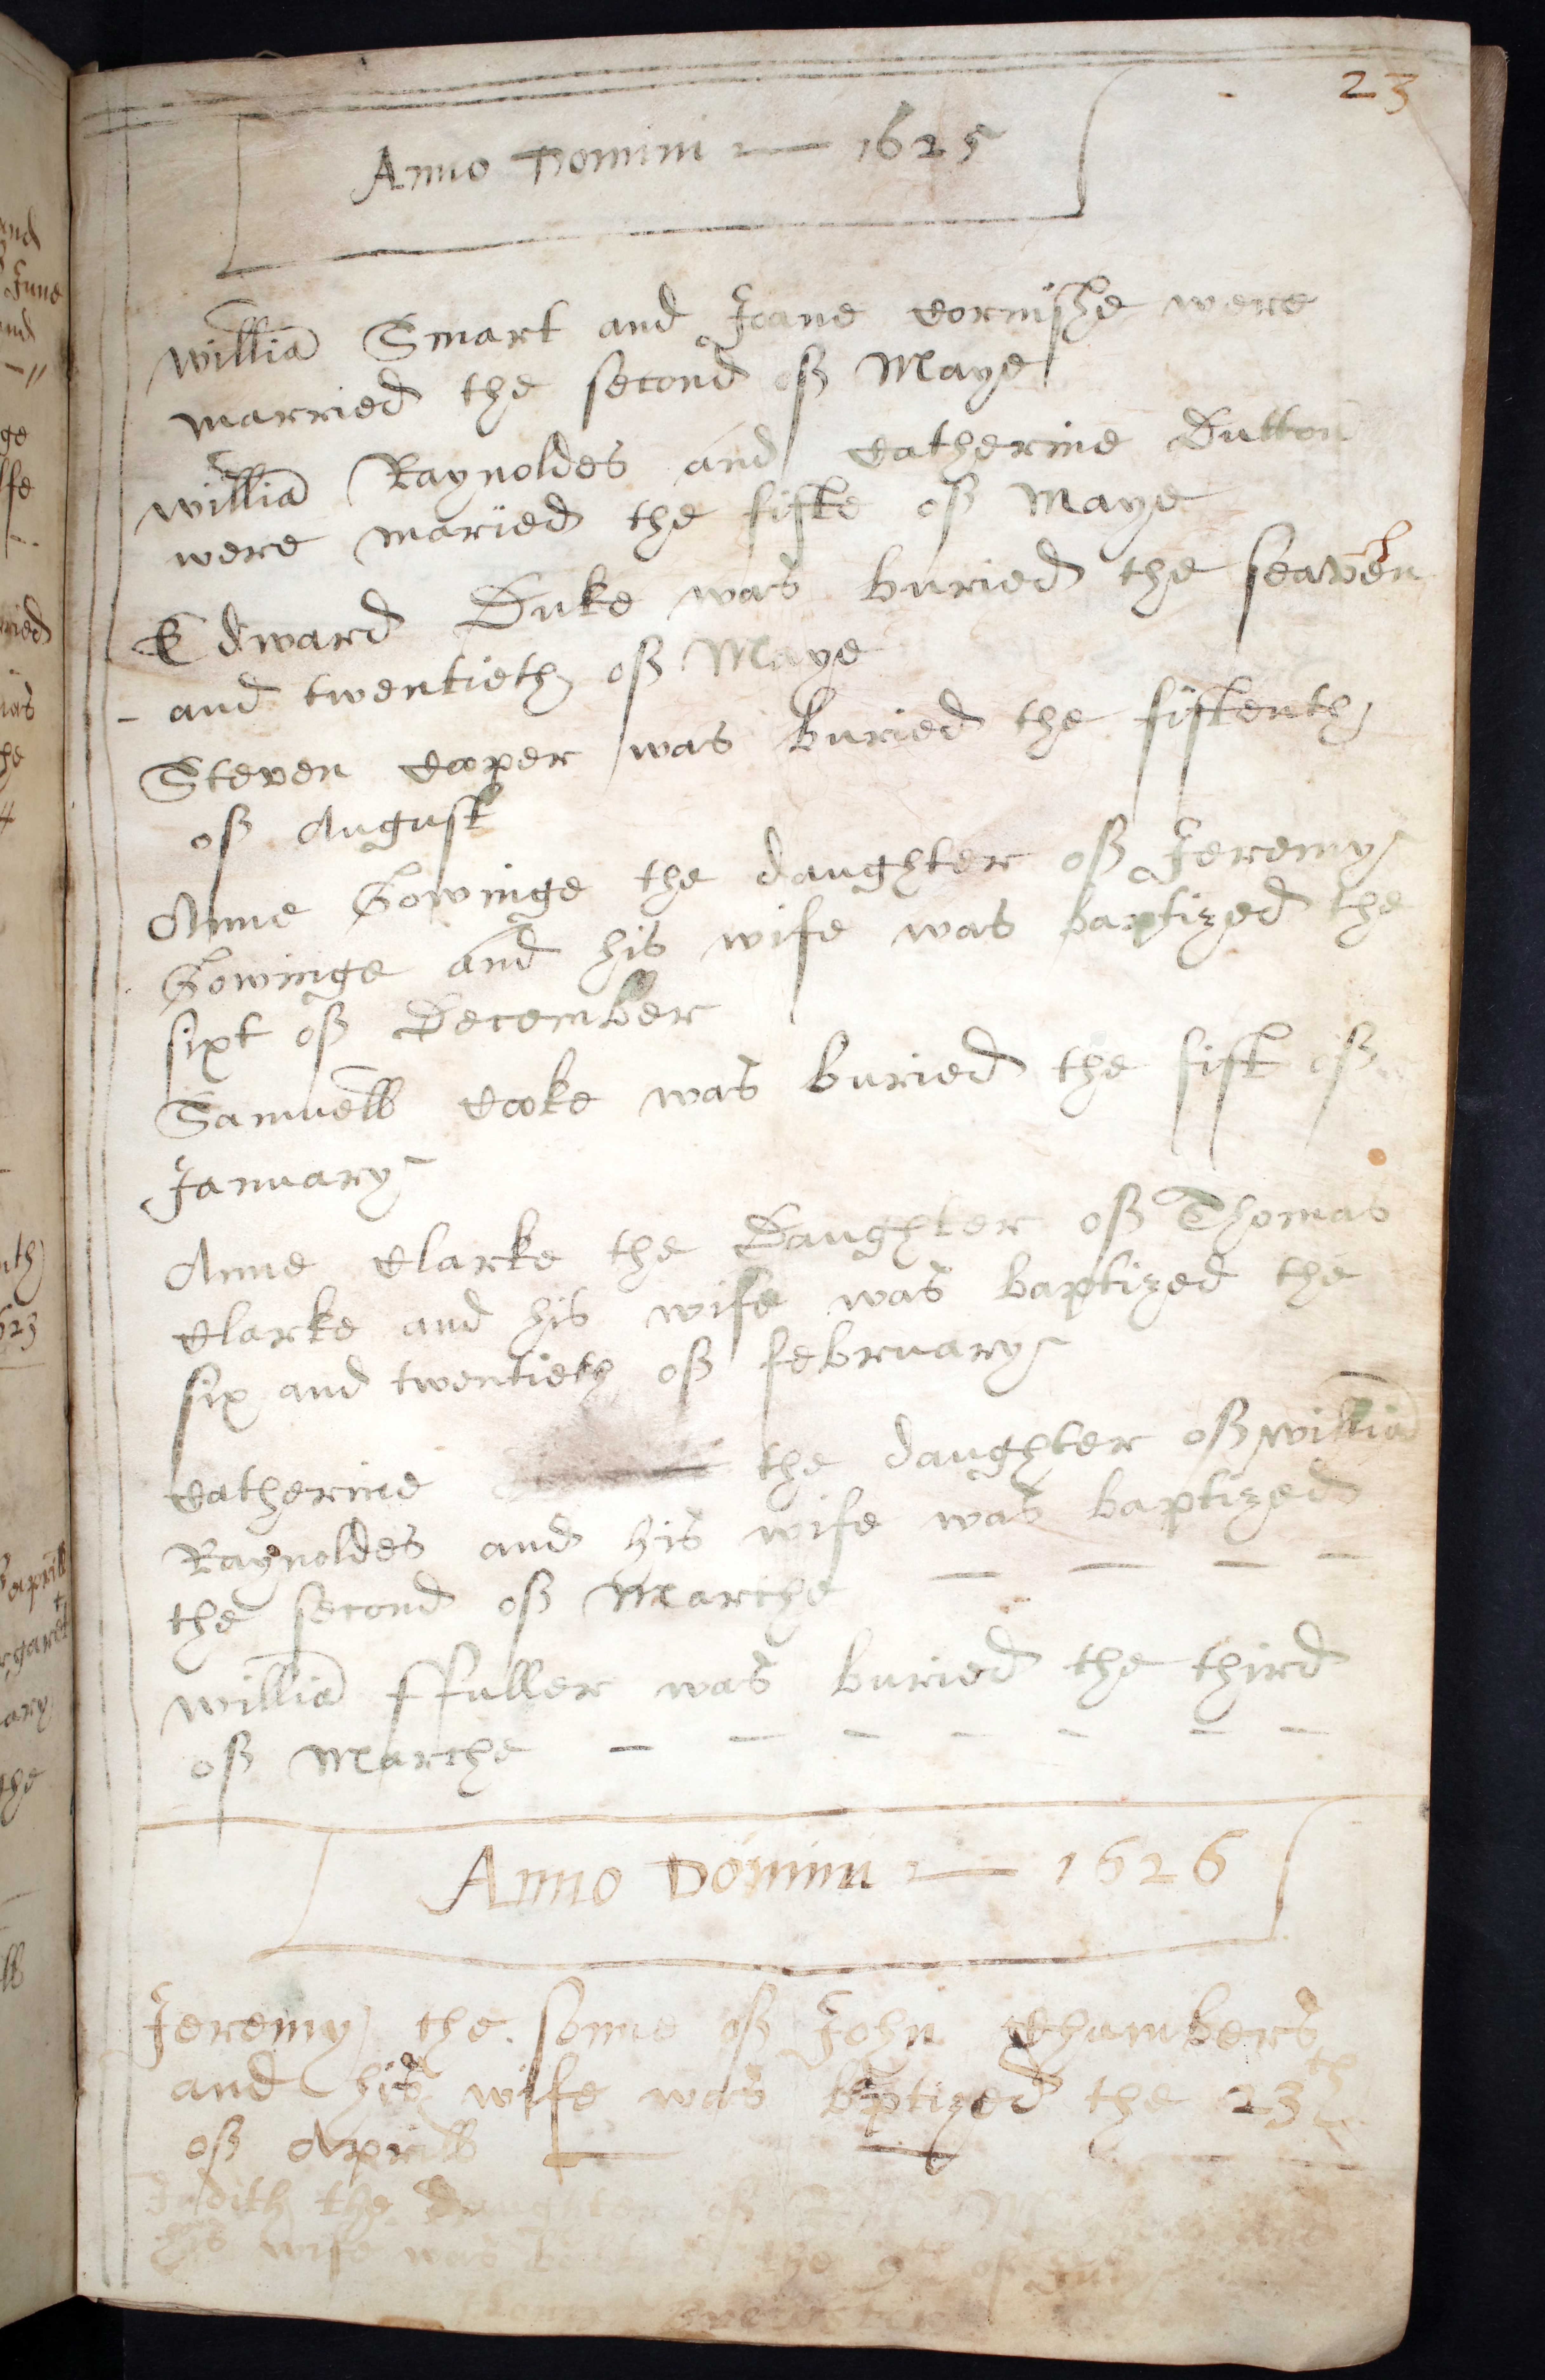 23
Anno Domini — 1625
Willia Smart and Joane Cornishe were
married the second off Maye
Willia Raynoldes and Catherine Dutton
were maried the fifte off Maye
Edward Duke was buried the seaven
- and twentieth off Maye
Steven Cooper was buried the fiftenth
off August
Anne Gowinge the daughter off Jeremy
Gowinge and his wife was baptized the
sixt off December
Samuell Cooke was buried the fift off
January
Anne Clarke the Daughter off Thomas
Clarke and his wife was baptized the
six and twentieth off february
Catherine the daughter off Willia
Raynoldes and his wife was baptized
the second off Marche — — — —
Willia ffuller was buried the third
off Marche — — — — — — —
Anno Domini — 1626
Jeremy the sonne off John Chambers
and his wife was baptized the 23th
off Aprill
Judith the daughter off
his wife was the 9th of July